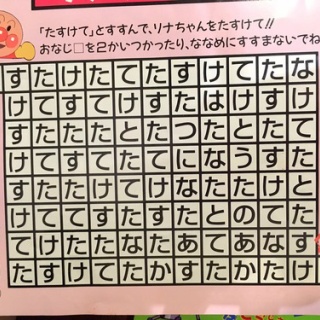 「たすけて」とすすんで、リナちゃんをたすけて!!
おなじ□を2かいつかったり、ななめにすすまないでね
すたけたてたすけてたな
けてすてけすたはけすけ
すたたたとたつたとたて
けてすてたてになうすた
すたたけてけなたたけと
けててすたすたとのてた
てけたたなたあてあなす
たすけてたかすたかたけ